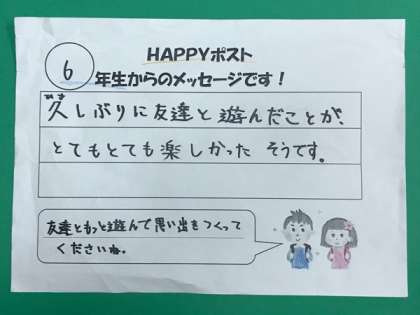 HAPPYポスト
6年生からのメッセージです！
久しぶりに友達と遊んだことが、
とてもとても楽しかった そうです。
友達ともっと遊んで思い出をつくって
くださいね。